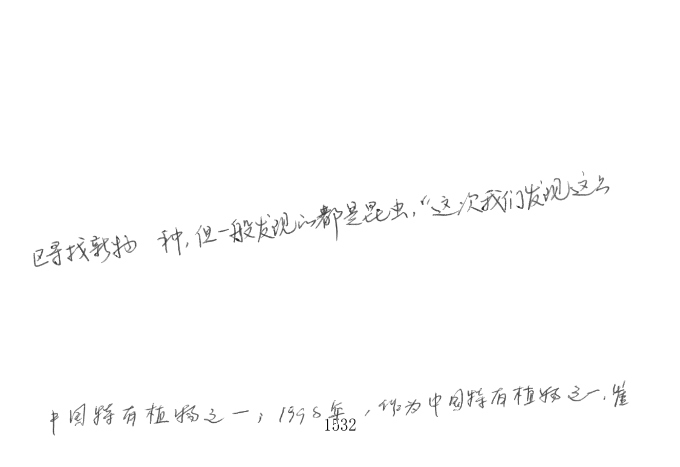 区寻找新物 种,但一般发现的都是昆虫,“这次我们发现这么
中国特有植物之一;1998年,作为中国特有植物之一,崔
1532